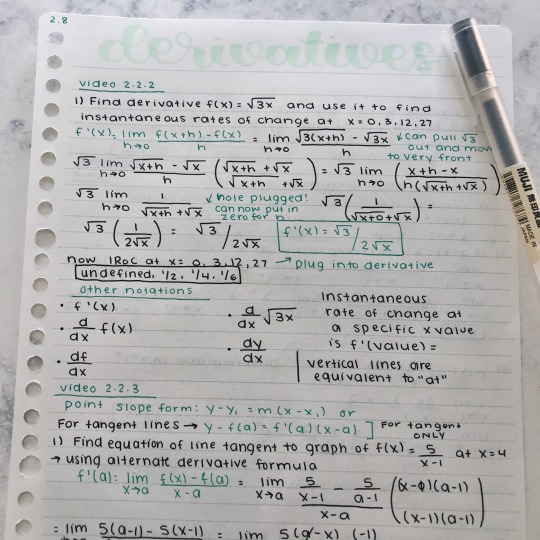 2.8
derivatives
video 2.2.2
1) Find derivative f(x) = √3x and use it to find
instantaneous rates of change at x = 0, 3, 12, 27
f'(x) = lim h→0 f(x+h)-f(x) / h = lim h→0 √3(x+h) - √3x / h
↙ can pull √3 out and move to very front
√3 lim h→0 √x+h - √x / h (√x+h + √x / √x+h + √x) = √3 lim h→0 (x+h-x / h(√x+h + √x))
√3 lim h→0 1 / √x+h + √x
↙ hole plugged! can now put in zero for h
√3 (1 / √x+0 + √x) =
√3 (1 / 2√x) = √3 / 2√x
f'(x) = √3 / 2√x
now IRoC at x = 0, 3, 12, 27 → plug into derivative
undefined, 1/2, 1/4, 1/6
other notations
• f'(x)
• d/dx f(x)
• df/dx
• d/dx √3x
• dy/dx
Instantaneous
rate of change at
a specific x value
is f'(value) =
vertical lines are
equivalent to "at"
video 2.2.3
point slope form: y-y₁ = m(x-x₁) or
For tangent lines → y-f(a) = f'(a)(x-a)
For tangent
ONLY
1) Find equation of line tangent to graph of f(x) = 5 / x-1 at x=4
→ using alternate derivative formula
f'(a): lim x→a f(x)-f(a) / x-a = lim x→a 5/x-1 - 5/a-1 / x-a
(a-1)
(x-1)(a-1)
= lim 5(a-1) - 5(x-1) = lim (-1)
MUJI 無印良品
MADE IN JAPAN